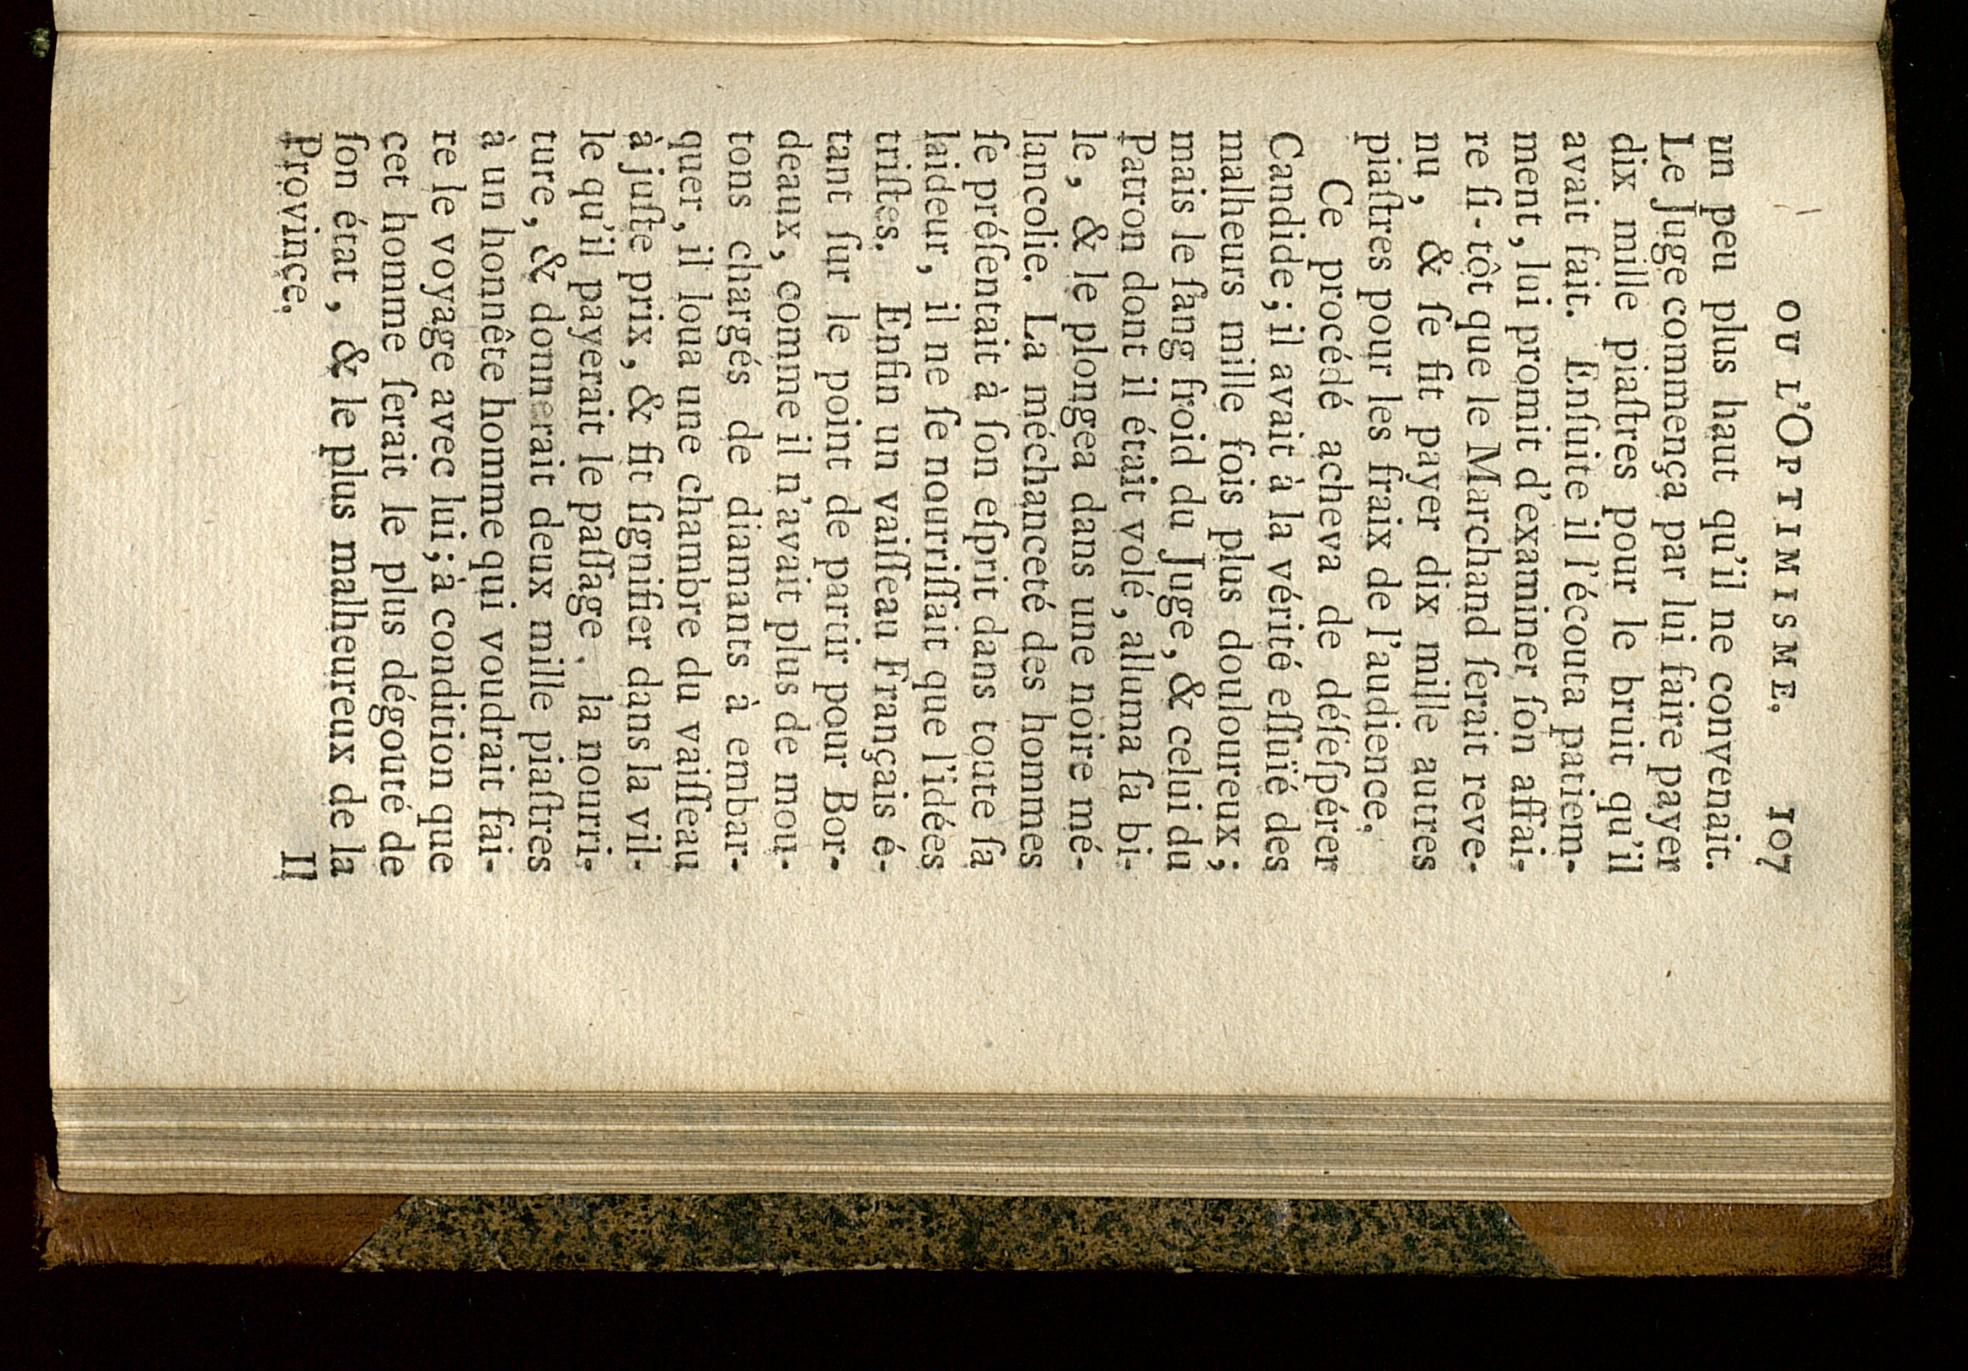 OU L'OPTIMISME. 107
un peu plus haut qu'il ne convenait.
Le Juge commença par lui faire payer
dix mille piaſtres pour le bruit qu'il
avait fait. Enſuite il l'écouta patiem-
ment, lui promit d'examiner ſon affai-
re ſi-tôt que le Marchand ſerait reve-
nu, & ſe fit payer dix mille autres
piaſtres pour les fraix de l'audience.
Ce procédé acheva de déſeſpérer
Candide; il avait à la vérité eſſuïé des
malheurs mille fois plus douloureux;
mais le ſang froid du Juge, & celui du
Patron dont il était volé, alluma ſa bi-
le, & le plongea dans une noire mé-
lancolie. La méchanceté des hommes
ſe préſentait à ſon eſprit dans toute ſa
laideur, il ne ſe nourriſſait que l'idées
triſtes. Enfin un vaiſſeau Français é-
tant ſur le point de partir pour Bor-
deaux, comme il n'avait plus de mou-
tons chargés de diamants à embar-
quer, il loua une chambre du vaiſſeau
à juſte prix, & fit ſignifier dans la vil-
le qu'il payerait le paſſage, la nourri-
ture, & donnerait deux mille piaſtres
à un honnête homme qui voudrait fai-
re le voyage avec lui; à condition que
cet homme ſerait le plus dégouté de
ſon état, & le plus malheureux de la
Province.
Il